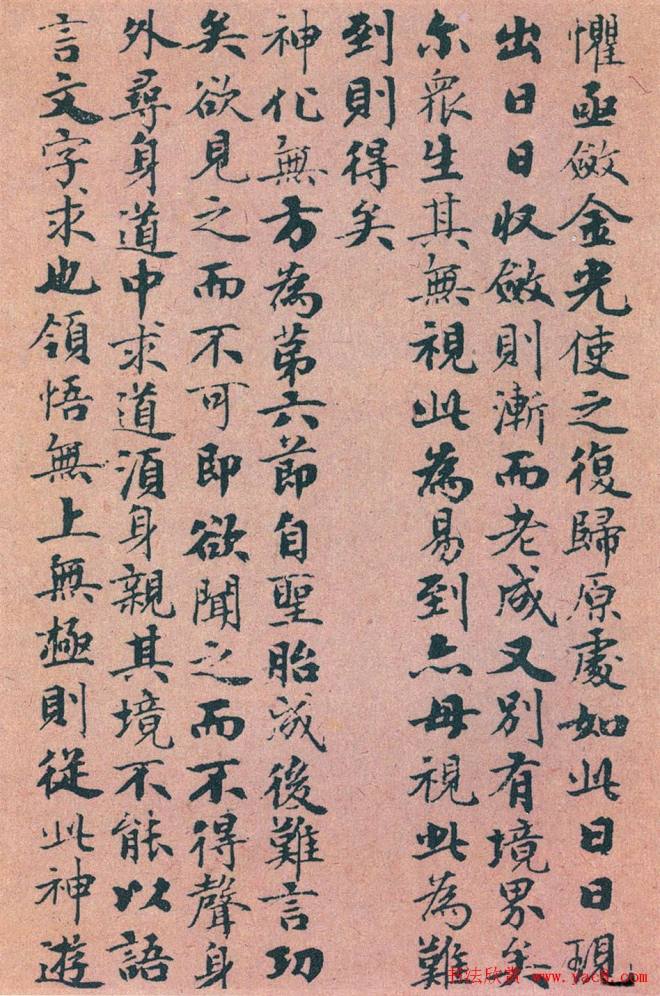 懼亟斂金光使之復歸原處如此日日現
出日日收斂則漸而老成又別有境界矣
尒衆生其無視此為易到亦毋視此為難
到則得矣
神化無方為苐六節自聖胎成後難言功
矣欲見之而不可即欲聞之而不得聲身
外尋身道中求道須身親其境不能以語
言文字求也領悟無上無極則從此神遊
书法欣赏 www.yac8.com